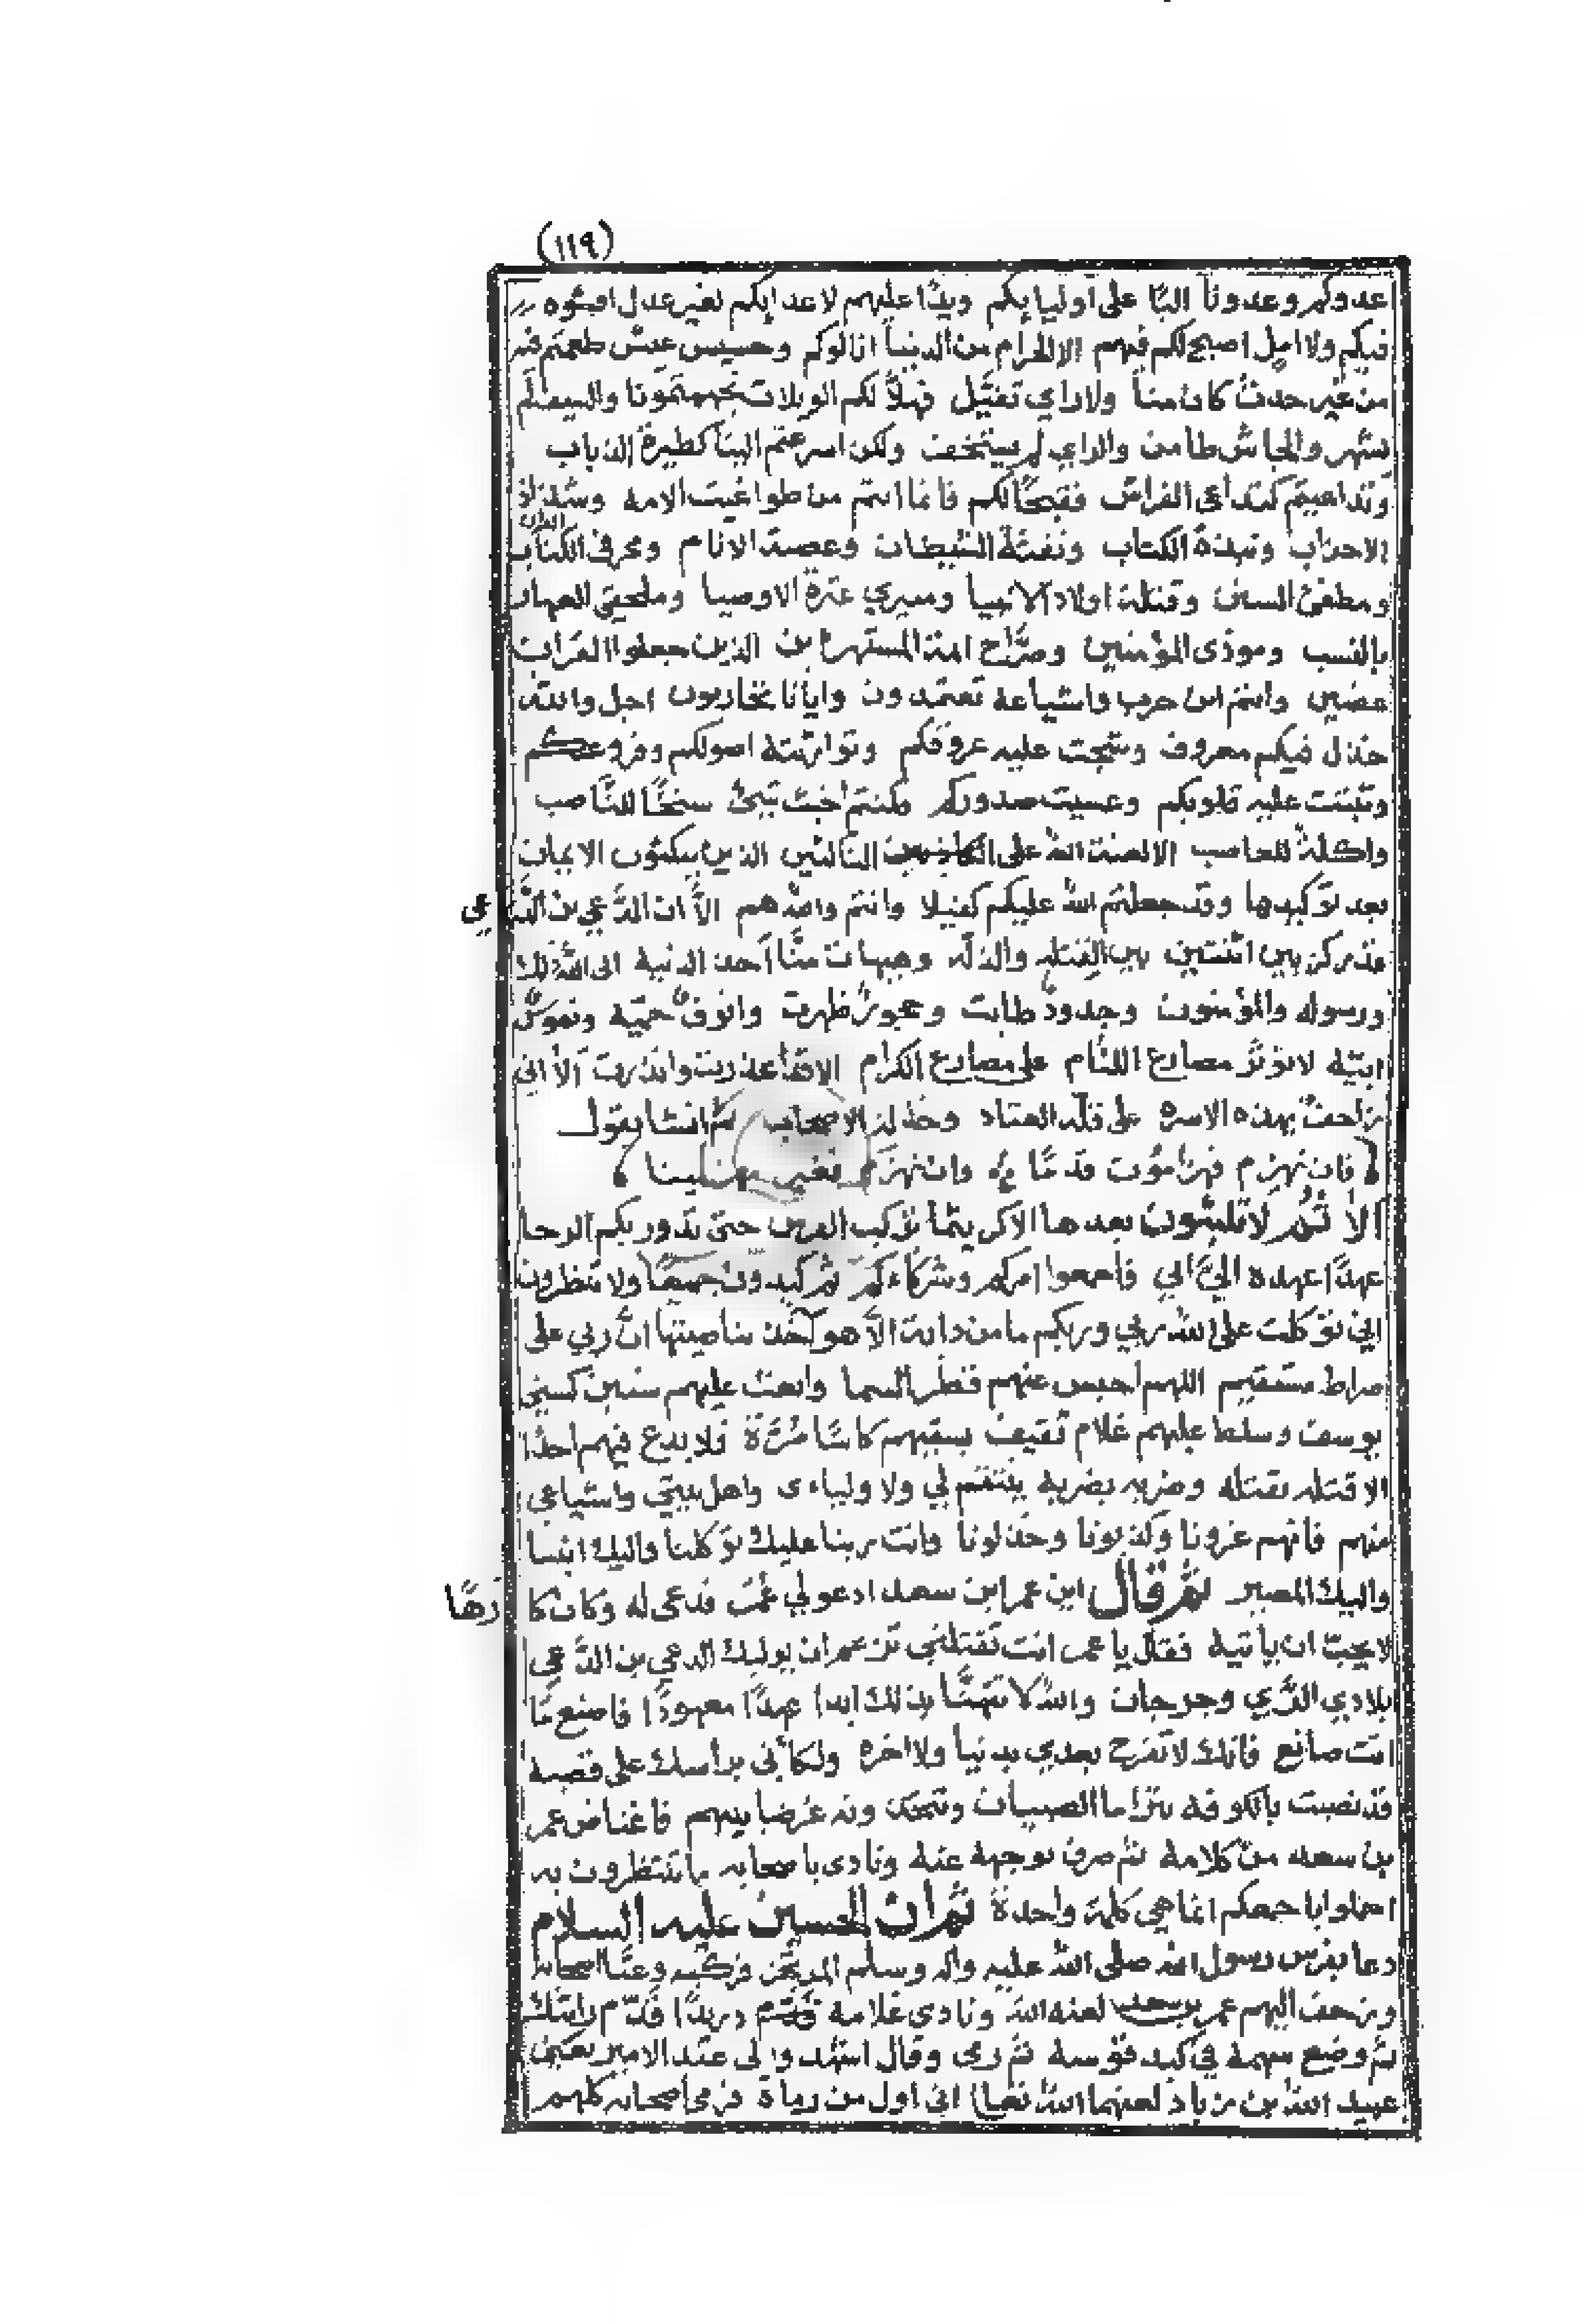 (١١٩)
عدوكم وعدونا البا على اوليايكم ويدا عليهم لاعدايكم لغير عدل افشوه
فيكم ولا امل اصبح لكم فيهم الا الحرام من الدنيا انالوكم وخسيس عيش طمعتم فيه
من غير حدث كان منا ولا راي تفيّل فهلّا لكم الويلات تجهمتمونا والسيف لم
يشهر والجاش طامن والراي لم يستخف ولكن اسرعتم الينا كطيرة الذباب
وتداعيتم كتداعي الفراش فقبحًا لكم فانما انتم من طواغيت الامه وشذاذ
الاحزاب ونبذة الكتاب ونفثة الشيطان وعصبة الاثام ومحرفي الكتاب
ومطفئ السنن وقتلة اولاد الانبيا ومبيري عترة الاوصيا وملحقي العهار
بالنسب وموذى المؤمنين وصرّاخ ايمة المستهزءين الذين جعلوا القران
عضين وانتم ابن حرب واشياعه تعتمدون وايانا تخاذلون اجل والله
خذل فيكم معروف وشجت عليه عروقكم وتوارثته اصولكم وفروعكم
وثبتت عليه قلوبكم وغشيت صدوركم فكنتم اخبث شئ سنخًا للناصب
واكلةً للغاصب الا لعنة الله على الناكثين الذين ينكثون الايمان
بعد توكيدها وقد جعلتم الله عليكم كفيلا وانتم والله هم الا ان الدّعي بن الدّعي
قد ركز بين اثنتين بين القتله والذله وهيهات منّا اخذ الدنية ابى الله ذلك
ورسوله والمؤمنون وجدود طابت وحجور طهرت وانوف حميّة ونفوس
ابيّة لا تؤثر مصارع اللئام على مصارع الكرام الا قد اعذرت وانذرت الا اني
زاحف بهذه الاسرة على قلة العتاد وخذلة الاصحاب ثم انشا يقول
فان نهزم فهزامون قدمًا وان نهزم فغير مهزمينا
الا ثم لا تلبثون بعدها الا كريثما تركب الفرس حتى تدور بكم الرحا
عهدًا عهده اليّ ابي فاجمعوا امركم وشركاءكم ثم كيدون جميعًا ولا تنظرون
اني توكلت على الله ربي وربكم ما من دابة الا هو اخذ بناصيتها انّ ربي على
صراط مستقيم اللهم احبس عنهم قطر السما وابعث عليهم سنين كسني
يوسف وسلط عليهم غلام ثقيف يسقيهم كاسًا مرّة فلا يدع فيهم احدًا
الا قتله بقتله وضربه بضربه ينتقم لي ولاولياءى واهل بيتي واشياعي
منهم فانهم غرونا وكذبونا وخذلونا وانت ربنا عليك توكلنا واليك انبنا
واليك المصير ثم قال اين عمر ابن سعد ادعو لي عمر فدعى له وكان كارهًا
لا يحبّ ان ياتيه فقال يا عمر انت تقتلني تزعم ان يوليك الدعي بن الدّعي
بلادي الرّي وجرجان والله لا تتهنّا بذلك ابدا عهدًا معهودًا فاصنع ما
انت صانع فانك لا تفرح بعدي بدنيا ولا اخره ولكأني براسك على قصبة
قد نصبت بالكوفه يتراما الصبيان ويتخذونه غرضا بينهم فاغتاض عمر
بن سعد من كلامه ثم صرف بوجهه عنه ونادى باصحابه ما تنتظرون به
احملوا باجمعكم انما هي كلة واحدة ثم ان الحسين عليه السلام
دعا بفرس رسول الله صلى الله عليه واله وسلم المرتجز فركبه وعبّا اصحابه
وزحف اليهم عمر بن سعد لعنه الله ونادى غلامه دريدًا قدّم رايتك
ثم وضع سهمه في كبد قوسه ثم رمى وقال اشهدوا لي عند الامير يعني
عبيد الله بن زياد لعنهما الله تعالى اني اول من رماة فرمى اصحابه كلهم